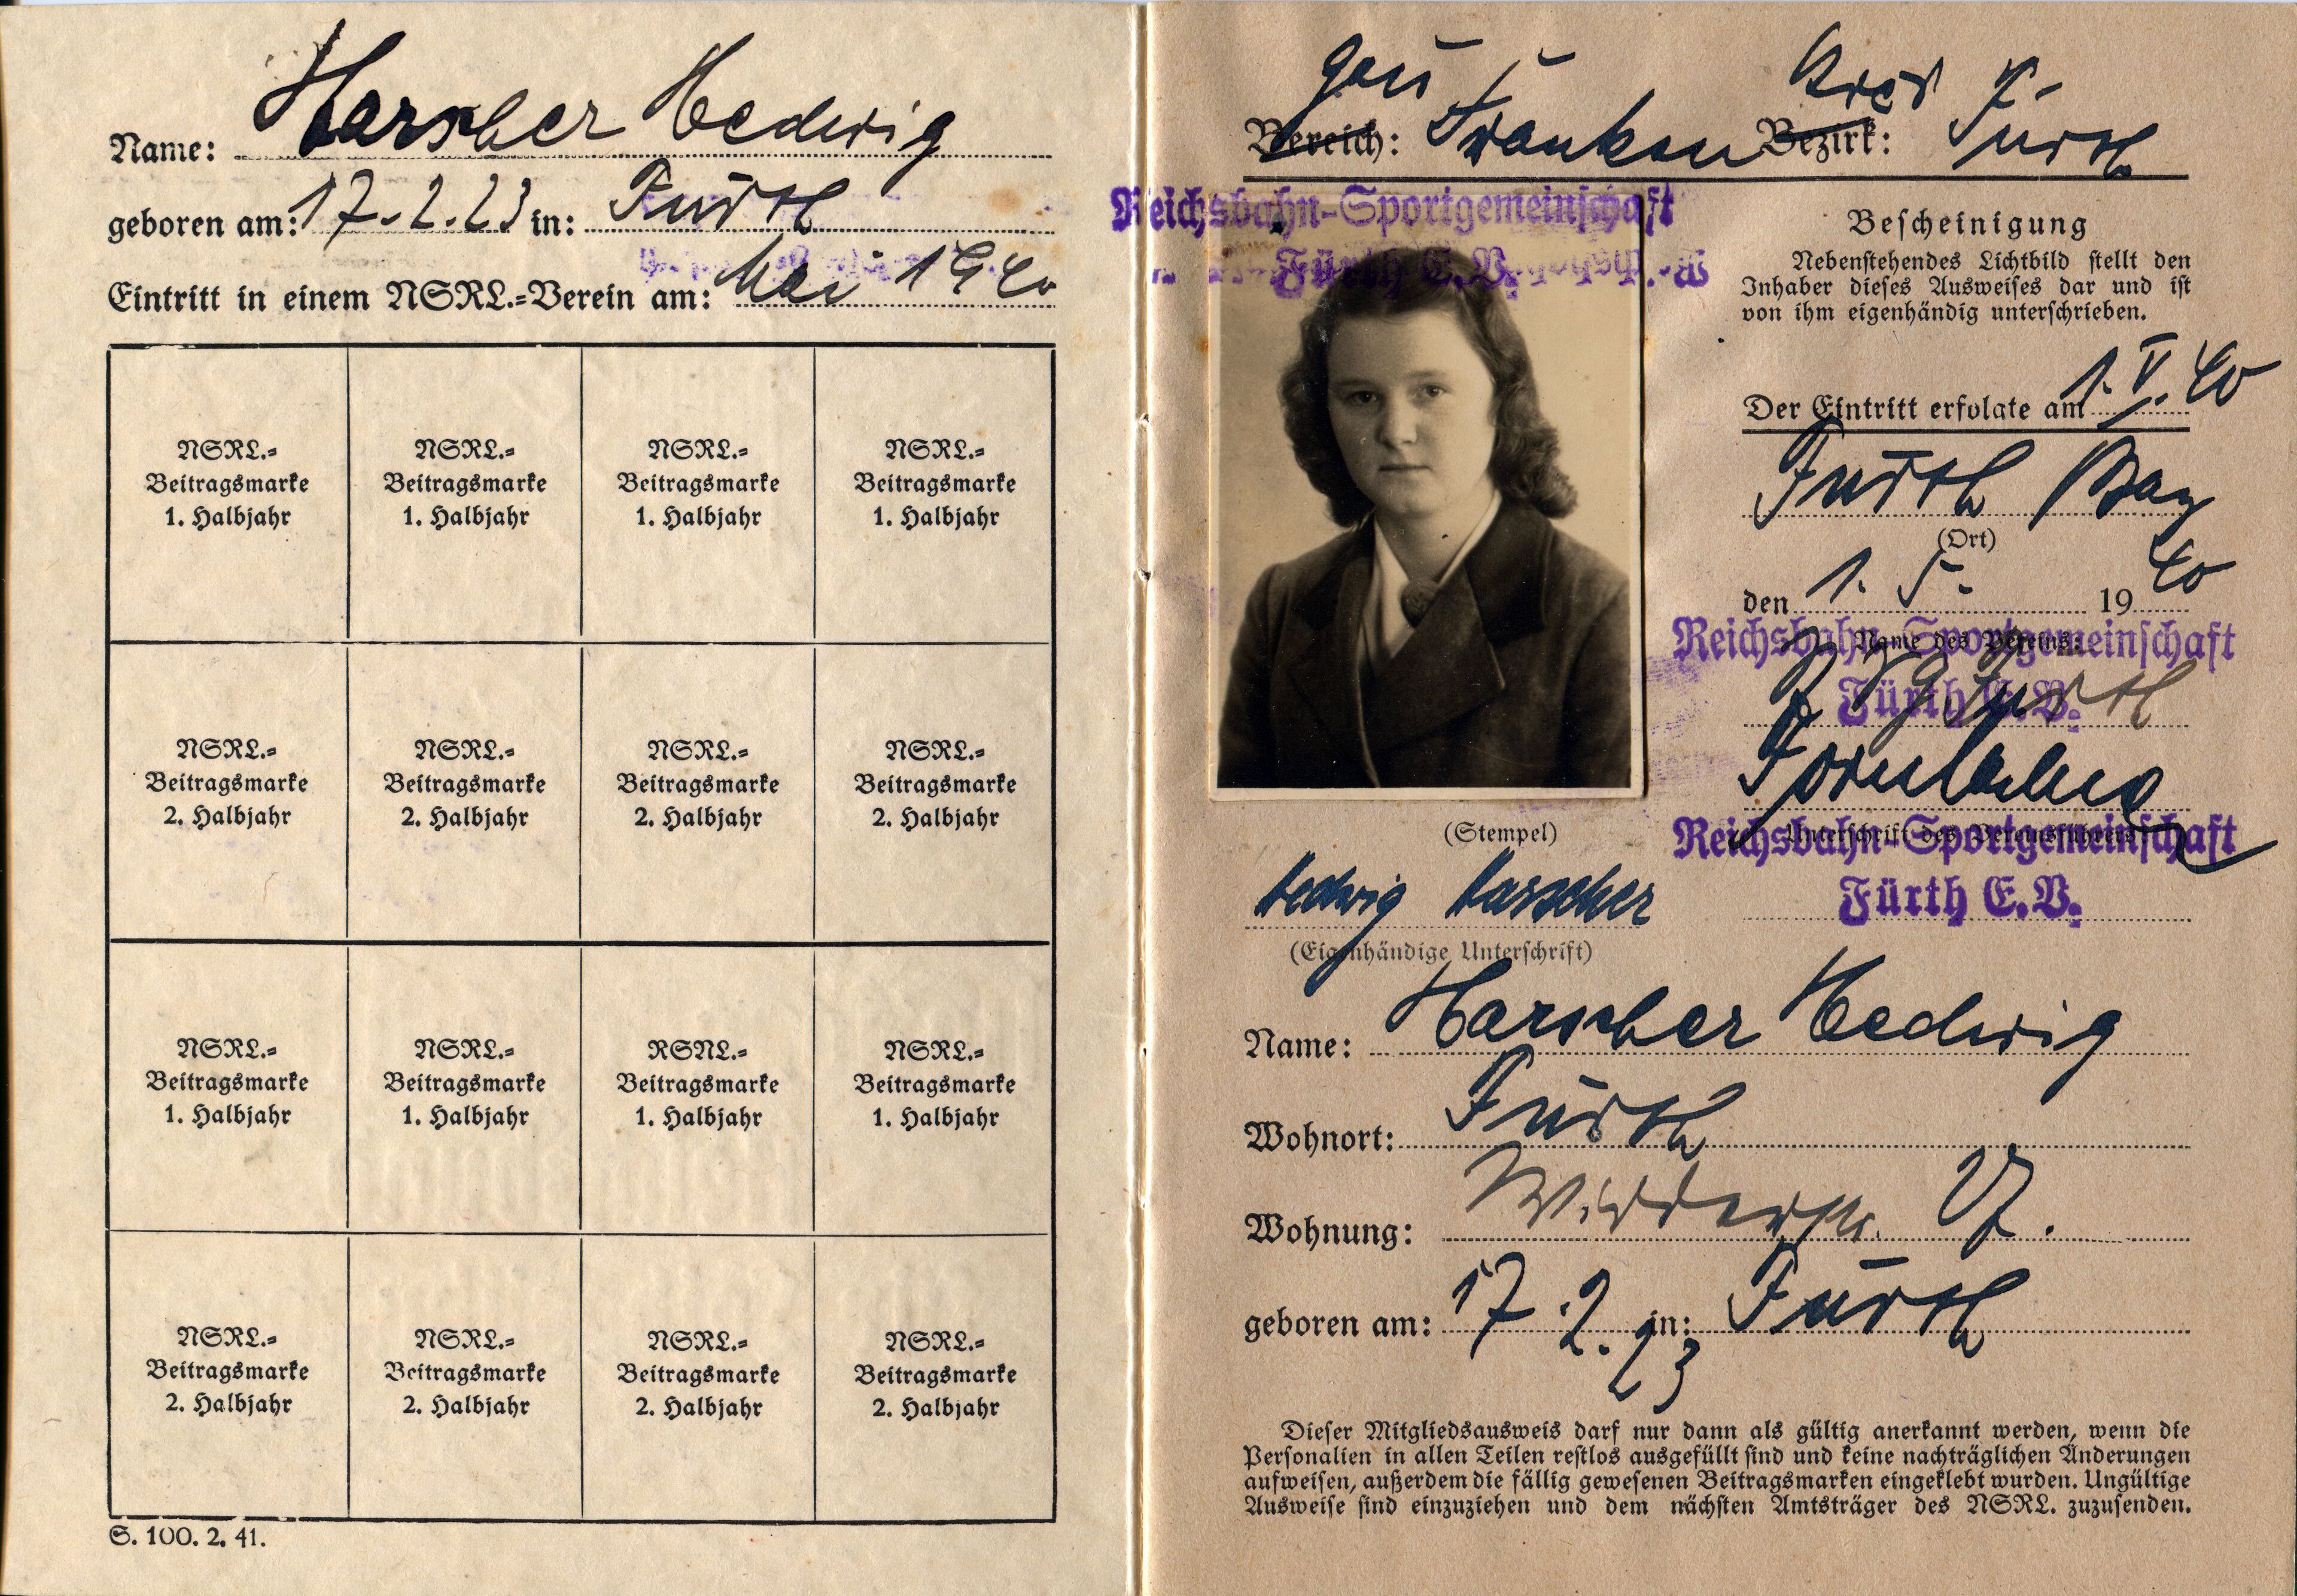 Name: Harscher Hedwig
geboren am: 17.2.23 in: Fürth
Eintritt in einem NSRL.=Verein am: Mai 1940
NSRL.= NSRL.= NSRL.= NSRL.=
Beitragsmarke Beitragsmarke Beitragsmarke Beitragsmarke
1. Halbjahr 1. Halbjahr 1. Halbjahr 1. Halbjahr
NSRL.= NSRL.= NSRL.= NSRL.=
Beitragsmarke Beitragsmarke Beitragsmarke Beitragsmarke
2. Halbjahr 2. Halbjahr 2. Halbjahr 2. Halbjahr
NSRL.= NSRL.= RSNL.= NSRL.=
Beitragsmarke Beitragsmarke Beitragsmarke Beitragsmarke
1. Halbjahr 1. Halbjahr 1. Halbjahr 1. Halbjahr
NSRL.= NSRL.= NSRL.= NSRL.=
Beitragsmarke Beitragsmarke Beitragsmarke Beitragsmarke
2. Halbjahr 2. Halbjahr 2. Halbjahr 2. Halbjahr
S. 100. 2. 41.
Gau Kreis
Bereich: Franken Bezirk: Fürth
Reichsbahn-Sportgemeinschaft
Fürth E.V.
Bescheinigung
Nebenstehendes Lichtbild stellt den
Inhaber dieses Ausweises dar und ist
von ihm eigenhändig unterschrieben.
Der Eintritt erfolgte am 1.V.40
Fürth Bay
(Ort)
den 1. 5. 1940
Name des Vereins:
Reichsbahn-Sportgemeinschaft
Fürth E.V.
Fürth
Unterschrift des Vereinsführers
Reichsbahn-Sportgemeinschaft
Fürth E.V.
(Stempel)
Hedwig Harscher
(Eigenhändige Unterschrift)
Name: Harscher Hedwig
Wohnort: Fürth
Wohnung:
geboren am: 17.2.23 in: Fürth
Dieser Mitgliedsausweis darf nur dann als gültig anerkannt werden, wenn die
Personalien in allen Teilen restlos ausgefüllt sind und keine nachträglichen Änderungen
aufweisen, außerdem die fällig gewesenen Beitragsmarken eingeklebt wurden. Ungültige
Ausweise sind einzuziehen und dem nächsten Amtsträger des NSRL. zuzusenden.